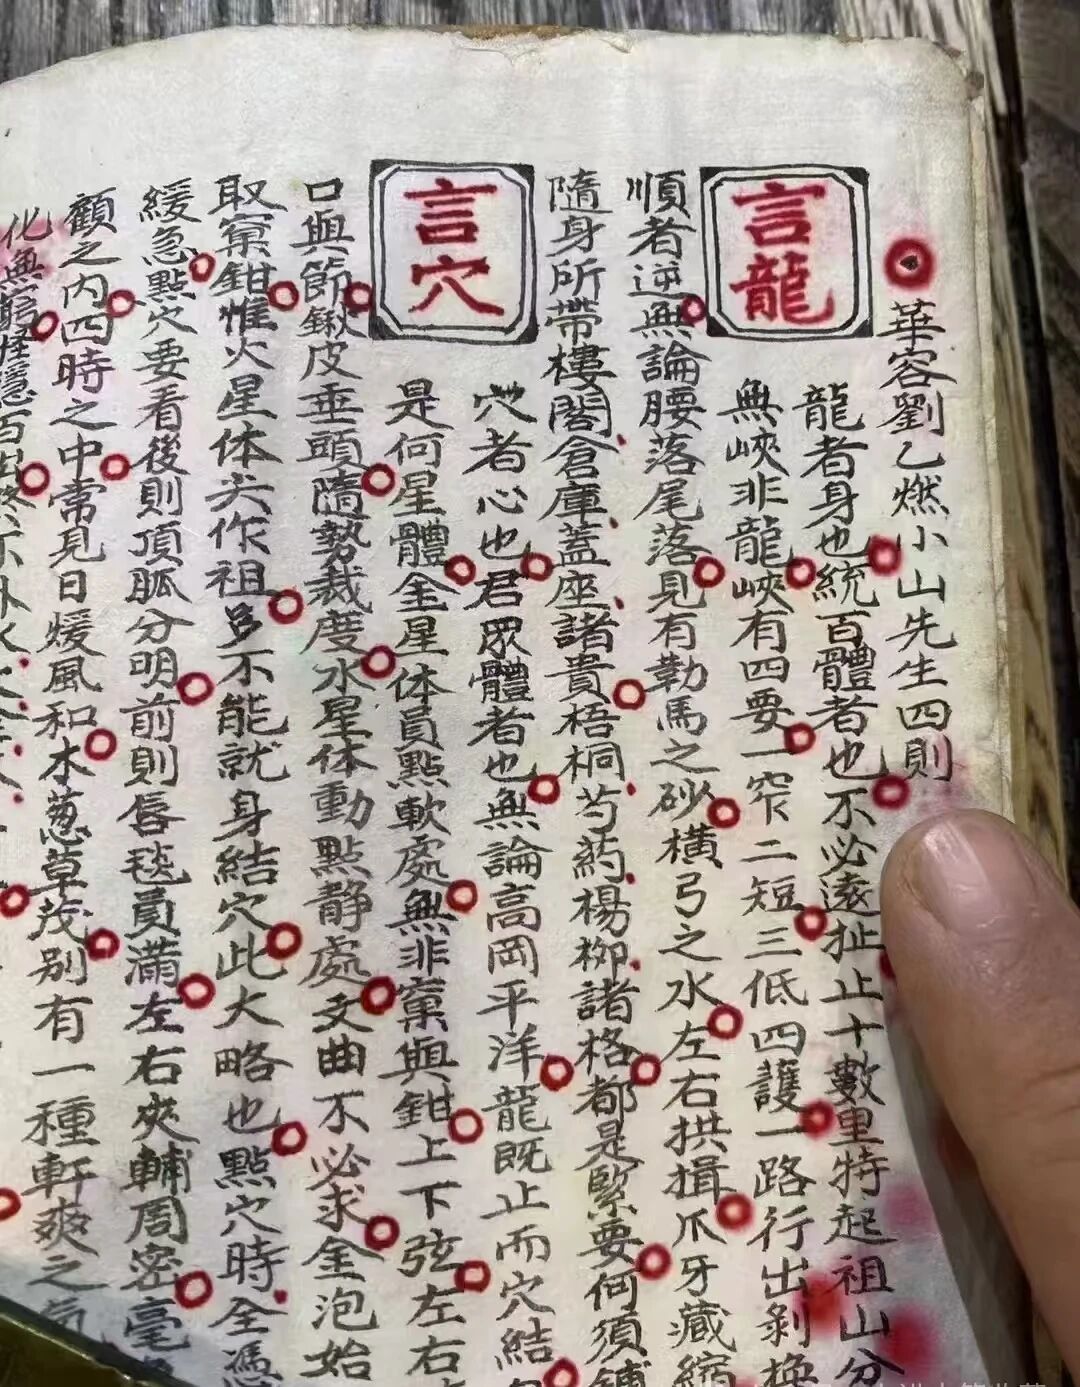 華容劉乙燃小山先生四則
言龍
龍者身也統百體者也不必遠扯止十數里特起祖山分
無峽非龍峽有四要一窄二短三低四護一路行出剝換
順者逆無論腰落尾落見有勒馬之砂橫弓之水左右拱揖爪牙藏縮
隨身所帶樓閣倉庫蓋座諸貴梧桐芍葯楊柳諸格都是緊要何須
言穴
穴者心也君眾體者也無論高岡平洋龍既止而穴結
是何星體金星体員點軟處無非窠與鉗上下弦左右
口與節鍬皮垂頭隨勢裁度水星体動點静處文曲不必求金泡始
取窠鉗惟火星体尖作祖多不能就身結穴此大略也點穴時全憑
緩急點穴要看後則頂脈分明前則唇毯員滿左右夾輔周密毫
顧之内四時之中常見日煖風和木葱草茂别有一種軒爽之氣
化無窮怪隱百出